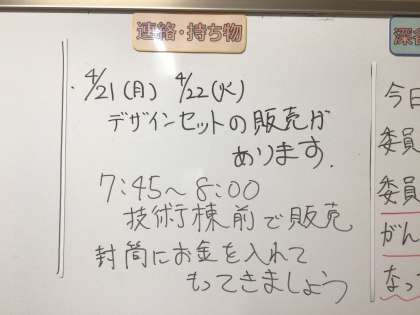 連絡・持ち物
・4/21(月) 4/22(火)
デザインセットの販売が
あります.
7:45〜8:00
技術棟前で販売
封筒にお金を入れて
もってきましょう
今日
委員
委員
がん
なっ